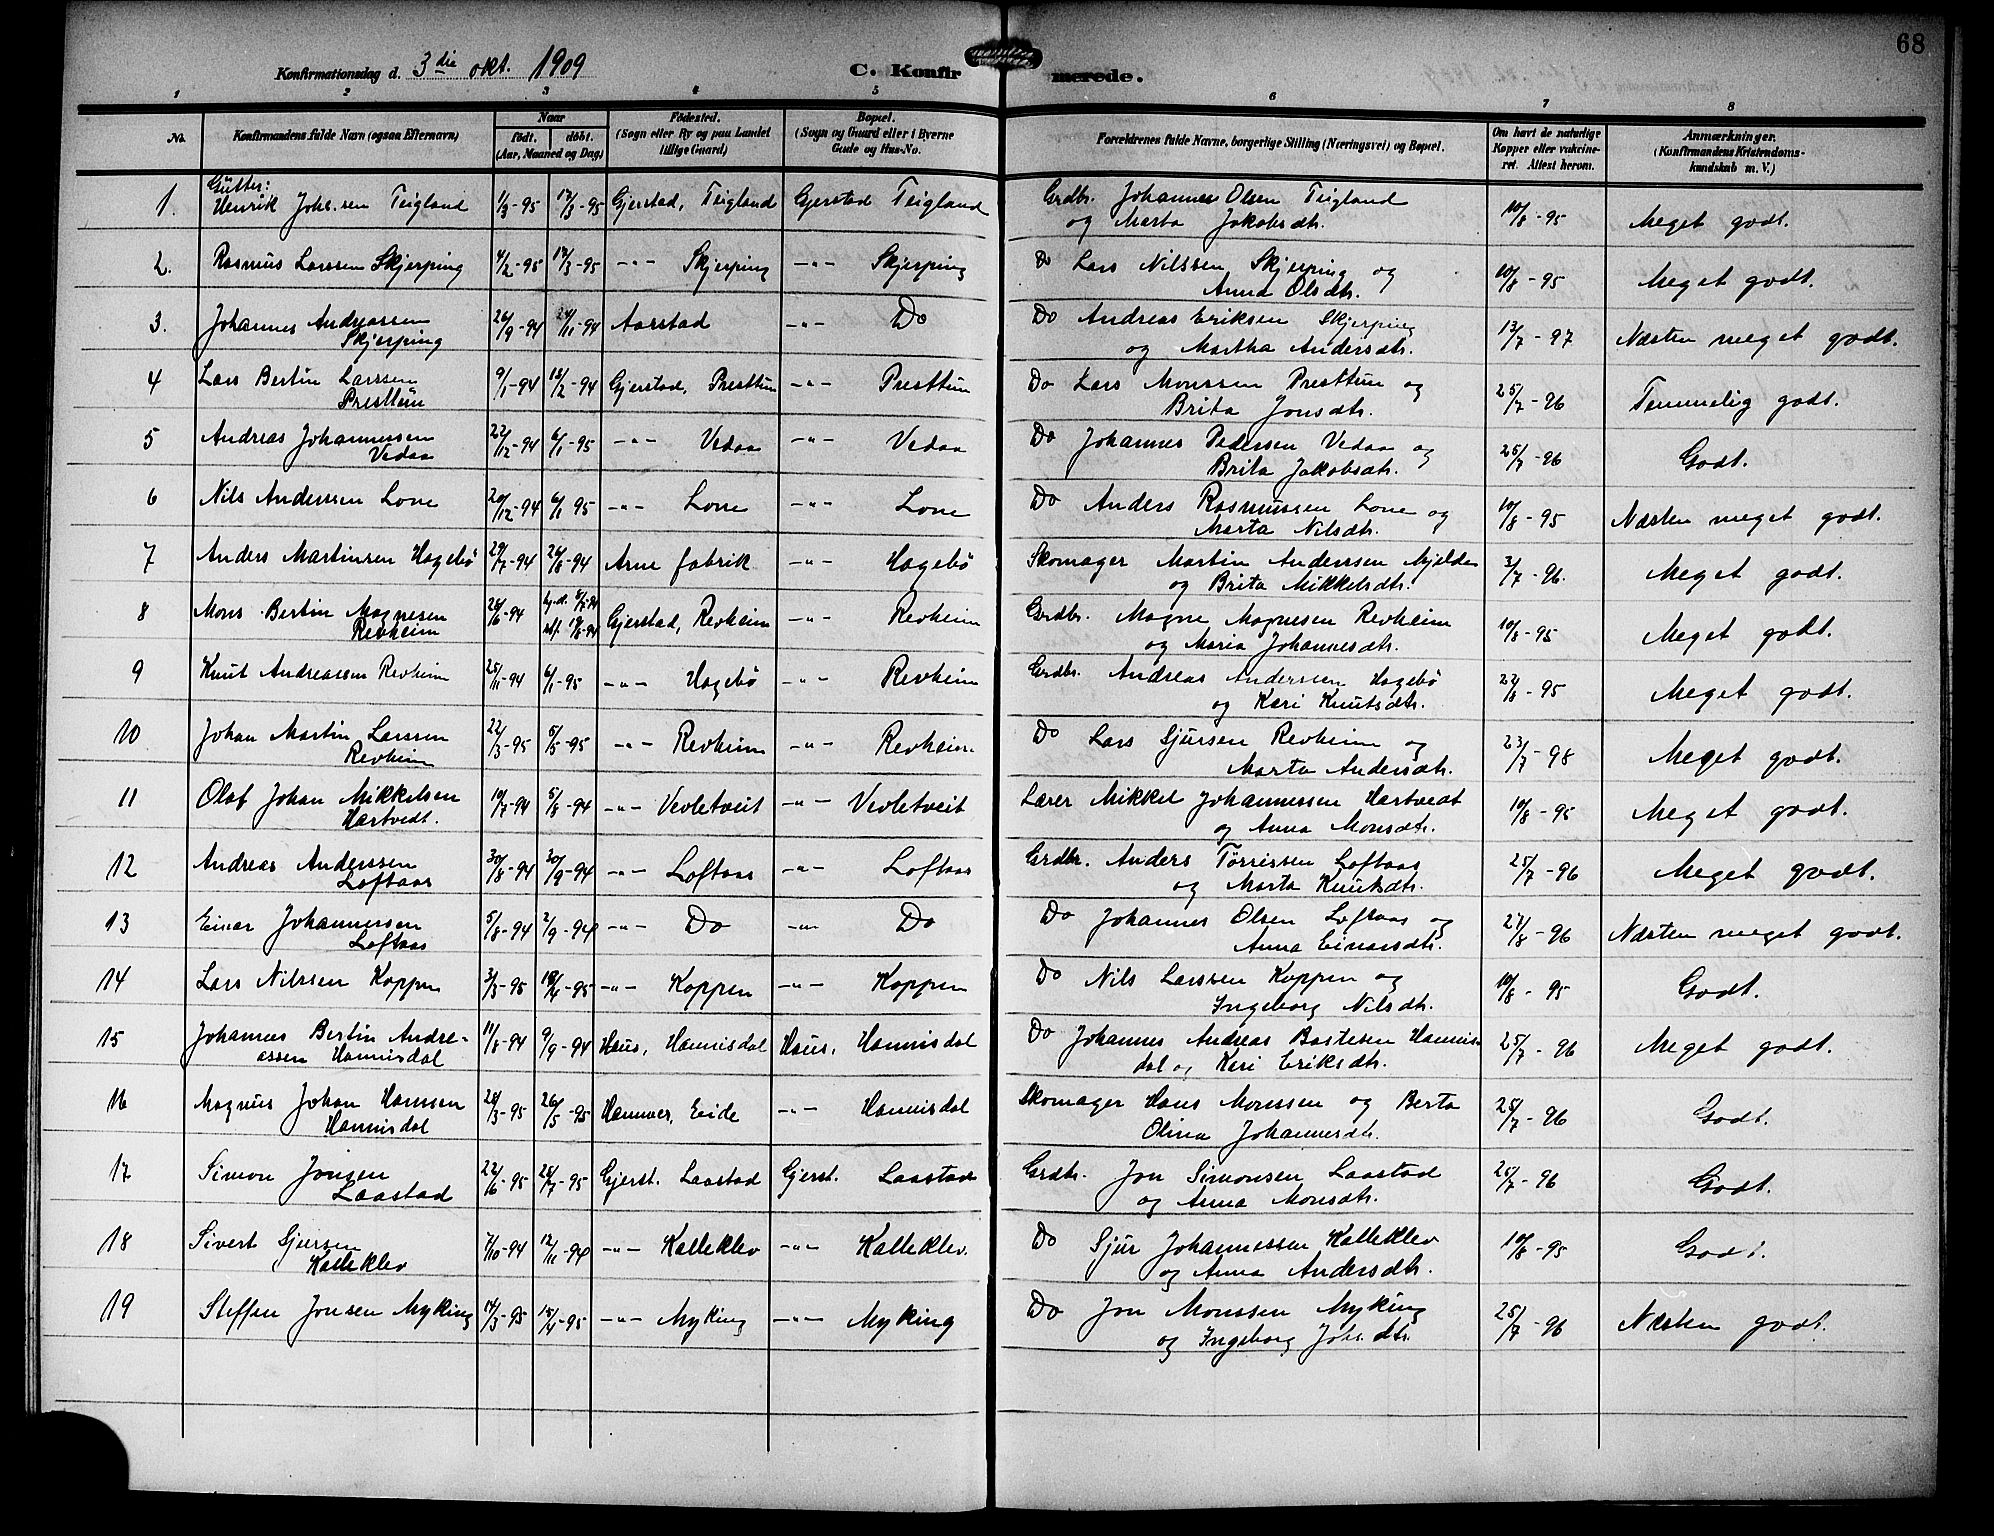 68
Konfirmationsdag d. 3die okt. 1909 C. Konfirmerede.
1 2 3 4 5 6 7 8
No. Konfirmandens fulde Navn (ogsaa Efternavn) Naar født. døbt. (Aar, Maaned og Dag) Fødested. (Sogn eller By og paa Landet tillige Gaard) Bopæl. (Sogn og Gaard eller i Byerne Gade og Hus-No. Forældrenes fulde Navne, borgerlige Stilling (Næringsvei) og Bopæl. Om havt de naturlige Kopper eller vakcineret. Attest herom. Anmærkninger. (Konfirmandens Kristendomskundskab m. V.)
Gutter:
1. Henrik Johs.sen Teigland 1/3-95 17/3-95 Gjerstad, Teigland Gjerstad Teigland Grdbr. Johannes Olsen Teigland 10/8-95 Meget godt.
og Marta Jakobsdtr.
2. Rasmus Larssen Skjerping 4/2-95 17/3-95 -"- Skjerping -"- Skjerping Do Lars Nilssen Skjerping og 10/8-95 Meget godt.
Anna Olsdtr.
3. Johannes Andreassen 26/9-94 24/11-94 Aarstad -"- Do Do Andreas Eriksen Skjerping 13/7-97 Næsten meget godt.
Skjerping og Martha Andersdtr.
4 Lars Bertin Larssen 9/1-94 18/2-94 Gjerstad, Presttun -"- Presttun Do Lars Monssen Presttun og 25/7-96 Temmelig godt.
Presttun Brita Jonsdtr.
5 Andreas Johannessen 22/12-94 6/1-95 -"- Vedaa -"- Vedaa Do Johannes Pedersen Vedaa og 25/7-96 Godt.
Vedaa Brita Jakobsdtr.
6 Nils Anderssen Lone 20/12-94 6/1 95 -"- Lone -"- Lone Do Anders Rasmussen Lone og 10/8-95 Næsten meget godt.
Marta Nilsdtr.
7 Anders Martinsen Hagebø 29/7-94 26/8-94 Arne fabrik -"- Hagebø Skomager Martin Anderssen Mjelde 3/7-96. Meget godt.
og Brita Mikkelsdtr.
8 Mons Bertin Magnesen 28/6-94 Gjerstad, Revheim -"- Revheim Grdbr. Magne Magnesen Revheim 10/8-95 Meget godt.
Revheim og Maria Johannesdtr.
9 Knut Andreassen Revheim 25/11-94 6/1-95 -"- Hagebø -"- Revheim Grdbr. Andreas Anderssen Hagebø 22/8-95 Meget godt.
og Kari Knutsdtr.
10 Johan Martin Larssen 22/3-95 5/5-95 -"- Revheim -"- Revheim Do Lars Sjursen Revheim og 23/7-98 Meget godt.
Revheim Marta Andersdtr.
11 Olaf Johan Mikkelsen 10/7-94 5/8-94 -"- Vevletveit -"- Vevletveit Lærer Mikkel Johannessen Hartvedt 10/8-95 Meget godt.
Hartvedt. og Anna Monsdtr.
12 Andreas Anderssen 30/8-94 30/9-94 -"- Loftaas -"- Loftaas Grdbr. Anders Tørrissen Loftaas 25/7-96 Meget godt.
Loftaas og Marta Knutsdtr.
13 Einar Johannessen 5/8-94 2/9-94 -"- Do -"- Do Do Johannes Olsen Loftaas og 27/8-96 Næsten meget godt.
Loftaas Anna Einarsdtr.
14 Lars Nilssen Koppen 3/3-95 /4-95 -"- Koppen -"- Koppen Do Nils Larssen Koppen og 10/8-95 Godt.
Ingeborg Nilsdtr.
15 Johannes Bertin Andre- 11/8-94 9/9-94 Haus, Hannisdal Haus, Hannisdal Do Johannes Andreas Bastesen Hannis- 25/7-96 Meget godt.
assen Hannisdal dal og Kari Eriksdtr.
16 Magnus Johan Hanssen 28/3-95 26/5-95 Hammer, Eide -"- Hannisdal Skomager Hans Monssen og Berta 25/7-96 Godt.
Hannisdal Olina Johannesdtr.
17 Simon Jonsen 22/6-95 28/7-95 Gjerst. Laastad Gjerst. Laastad Grdbr. Jon Simonsen Laastad 25/7-96 Godt.
Laastad og Anna Monsdtr.
18 Sivert Sjursen 7/10-94 12/11-94 -"- Kalleklev -"- Kalleklev. Do Sjur Johannessen Kalleklev 10/8-95 Godt.
Kalleklev og Anna Andersdtr.
19 Steffen Jonsen Myking 14/3-95 15/4-95 -"- Myking -"- Myking Do Jon Monssen Myking 25/7-96 Næsten godt.
og Ingeborg Johs.dtr.